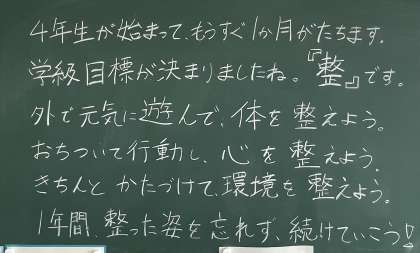 4年生が始まって、もうすぐ1か月がたちます。
学級目標が決まりましたね。『整』です。
外で元気に遊んで、体を整えよう。
おちついて行動し、心を整えよう。
きちんとかたづけて、環境を整えよう。
1年間、整った姿を忘れず、続けていこう!